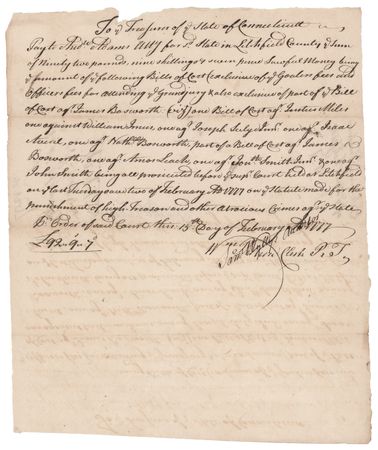 To ye Treasurer of ye State of Connecticutt
Pay to Andw Adams Atty for sd State in Litchfield County ye Sum
of Ninety two pounds, nine shillings & seven pence Lawfull Money being
ye amount of ye following Bills of Cost exclusive of ye Goalers fees and
Officers fees for attending ye Grandjury & also exclusive of part of ye Bill
of Cost agt James Bosworth (viz) one Bill of Cost agt Justice Mils
one against William Jones, one agt Joseph July Junr one agt Isaac
one agt Nathll Bosworth, part of a Bill of Cost agt James
Bosworth, one agt Amos Leach, one agt Jonth Smith Junr & one agt
John Smith being all prosecuted before ye Supr Court held at Litchfield
on ye last Tuesday save two of February AD 1777 on ye Statute made for the
punishment of high Treason and other Atrocious Crimes agt ye State
Pr Order of said Court this 15th Day of February 1777
£92-9-7
Clerk P. T.